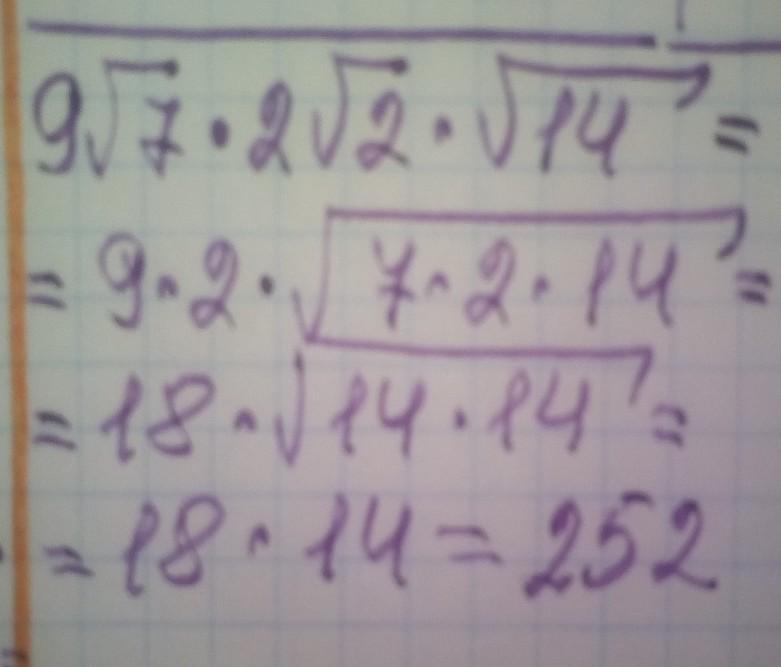 9√7 · 2√2 · √14 =
= 9 · 2 · √7 · 2 · 14 =
= 18 · √14 · 14 =
= 18 · 14 = 252